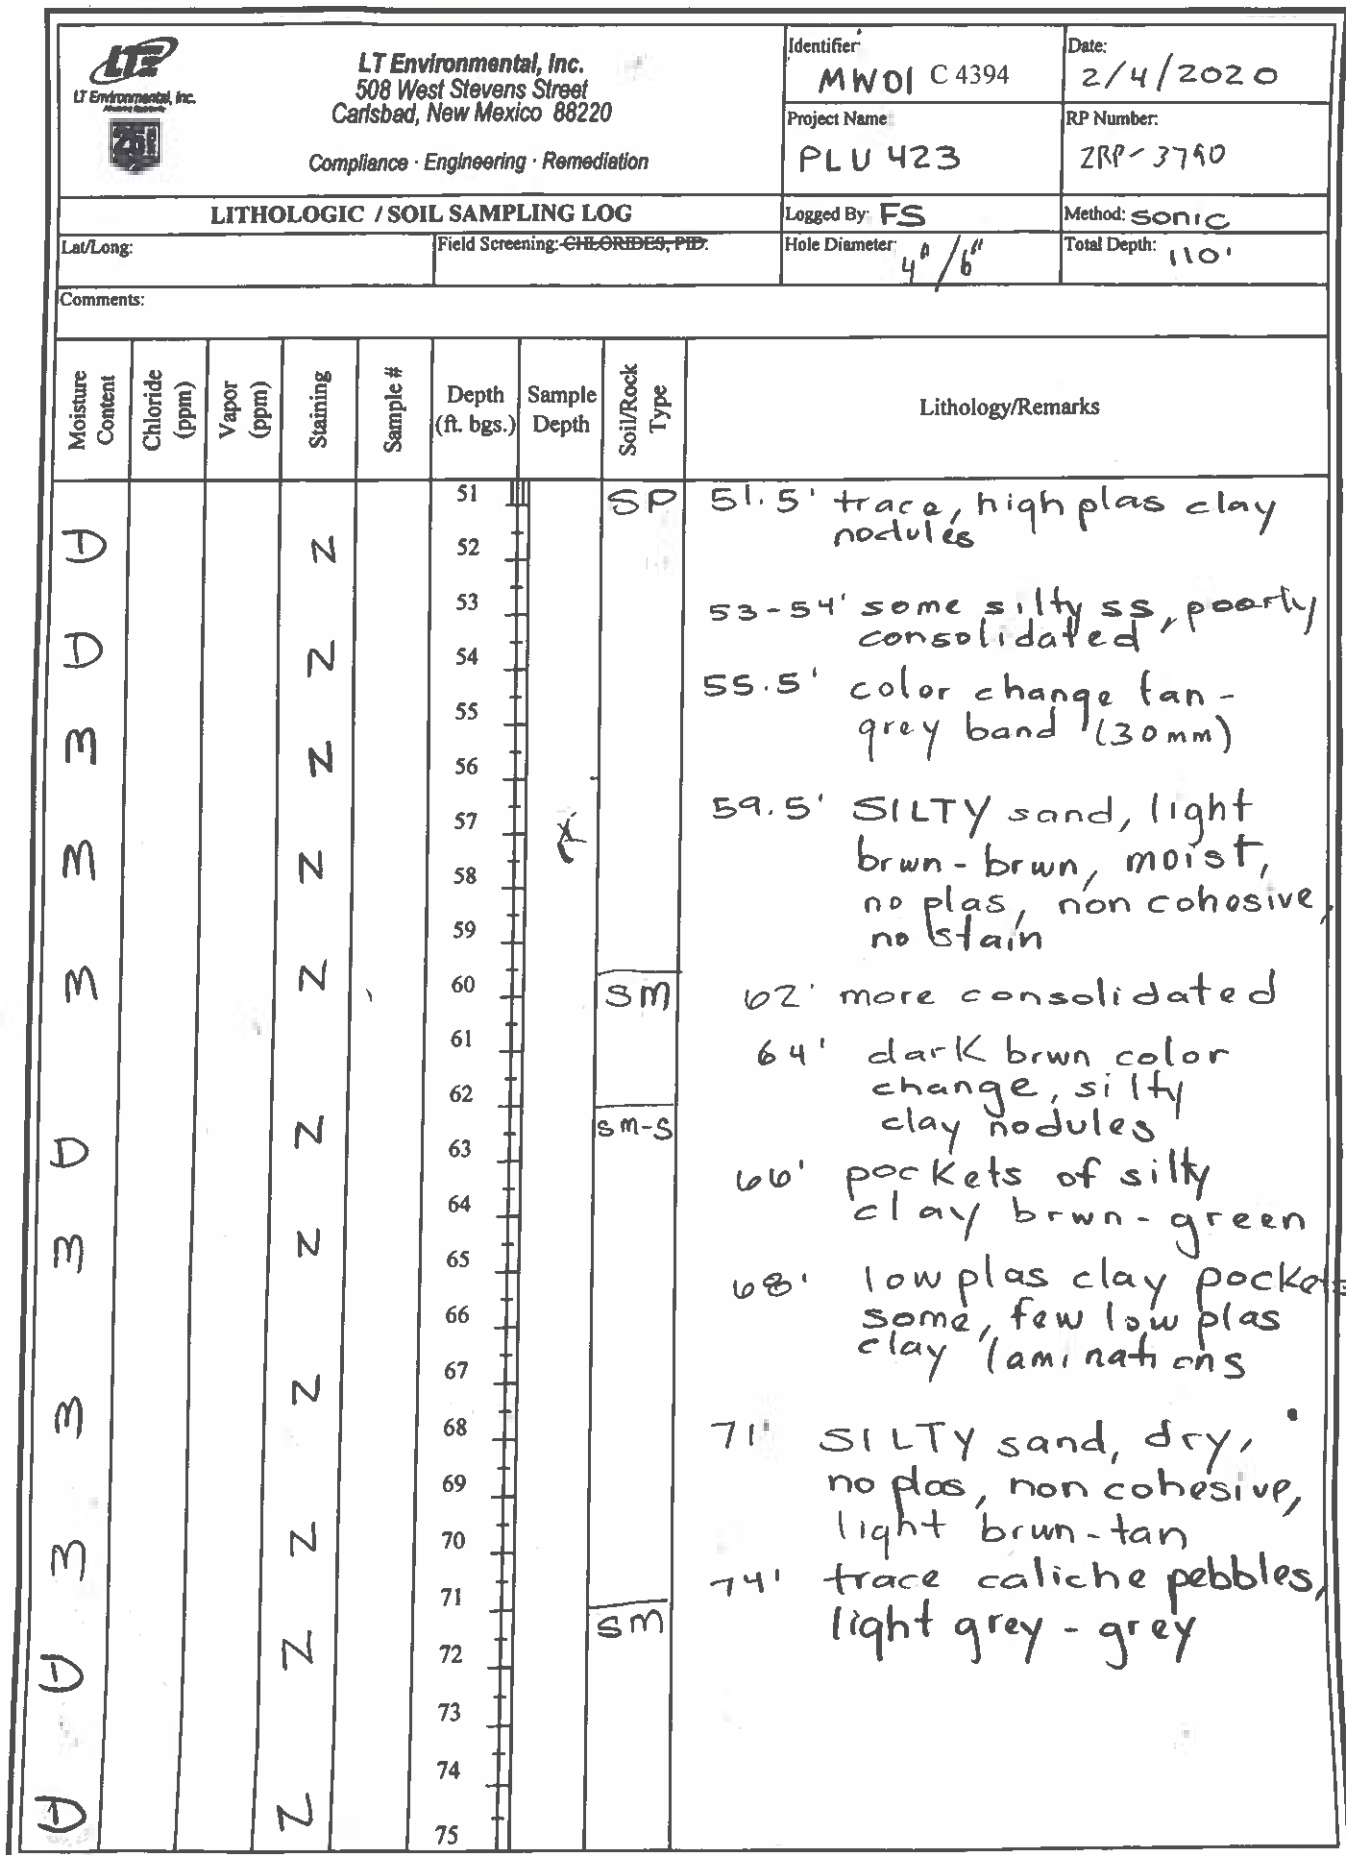 LTE
LT Environmental, Inc.
LT Environmental, Inc.
508 West Stevens Street
Carlsbad, New Mexico 88220
Compliance · Engineering · Remediation
Identifier:
MW01 C 4394
Date:
2/4/2020
Project Name:
PLU 423
RP Number:
2RP-3790
LITHOLOGIC / SOIL SAMPLING LOG
Logged By: FS
Method: sonic
Lat/Long:
Field Screening: CHLORIDES, PID.
Hole Diameter: 4"/6"
Total Depth: 110'
Comments:
Moisture Content
Chloride (ppm)
Vapor (ppm)
Staining
Sample #
Depth (ft. bgs.)
Sample Depth
Soil/Rock Type
Lithology/Remarks
51 SP 51.5' trace, high plas clay
nodules
D N 52
53 53-54' some silty ss, poorly
consolidated
D N 54
55.5' color change tan-
55 grey band (30mm)
M N 56
57 59.5' SILTY sand, light
brwn-brwn, moist,
M N 58
no plas, non cohesive,
59 no stain
M N 60 SM 62' more consolidated
61 64' dark brwn color
change, silty
62 clay nodules
D N 63 SM-S
66' pockets of silty
64 clay brwn-green
M N 65
68' low plas clay pockets
66 some, few low plas
clay laminations
67
M N 68 71' SILTY sand, dry,
69 no plas, non cohesive,
light brwn-tan
M N 70
74' trace caliche pebbles,
71 light grey - grey
SM
D N 72
73
74
D N 75